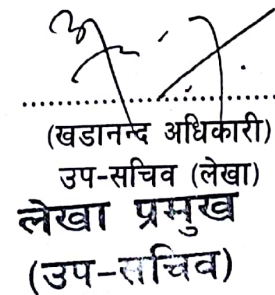 (खडानन्द अधिकारी)
उप-सचिव (लेखा)
लेखा प्रमुख
(उप-सचिव)